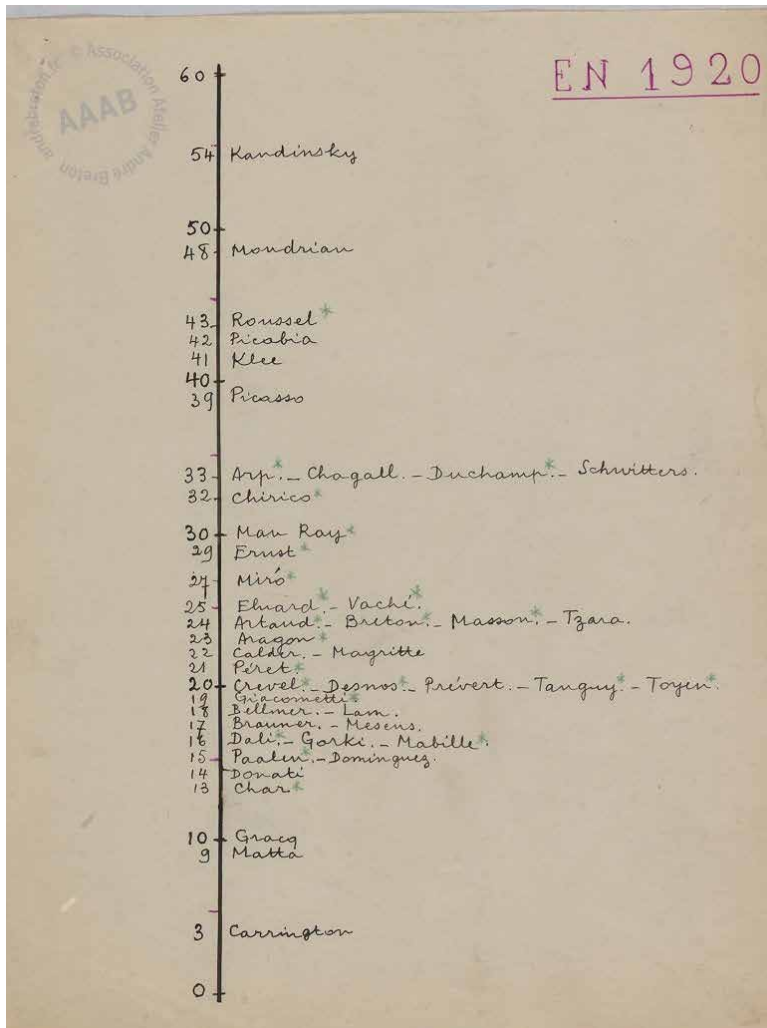 © Association Atelier André Breton andrebreton.fr
AAAB
EN 1920
60
54 Kandinsky
50
48 Mondrian
43 Roussel*
42 Picabia
41 Klee
40
39 Picasso
33 Arp.* – Chagall. – Duchamp*. – Schwitters.
32 Chirico*
30 Man Ray*
29 Ernst*
27 Miró*
25 Eluard.* – Vaché.*
24 Artaud*. – Breton.* – Masson.* – Tzara.
23 Aragon*
22 Calder. – Magritte
21 Péret.*
20 Crevel.* – Desnos.* – Prévert. – Tanguy.* – Toyen.*
19 Giacometti*
18 Bellmer. – Lam.
17 Brauner. – Mesens.
16 Dali.* – Gorki. – Mabille*.
15 Paalen*. – Dominguez.
14 Donati
13 Char.*
10 Gracq
9 Matta
3 Carrington
0